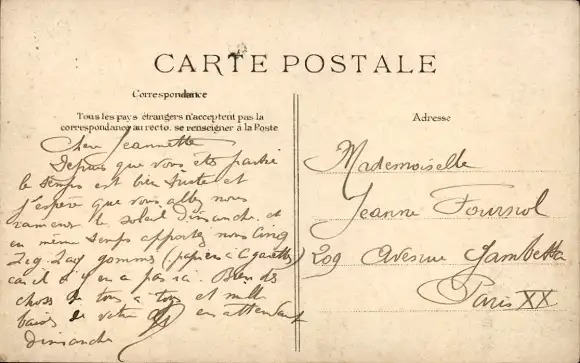 CARTE POSTALE
Correspondance
Tous les pays étrangers n'acceptent pas la
correspondance au recto. se renseigner à la Poste
Chere Jeannette
Depuis que vous êtes partie
le temps est bien triste et
j'espère que vous allez nous
ramener le soleil dimanche. et
en même temps apportez nous cinq
Zig-Zag gommés (papiers à Cigarettes)
car il n'y en a pas ici. Bien des
choses de tous à tous et mille
baisers de votre en attendant
dimanche
Adresse
Mademoiselle
Jeanne Fournol
209 Avenue Gambetta
Paris XX